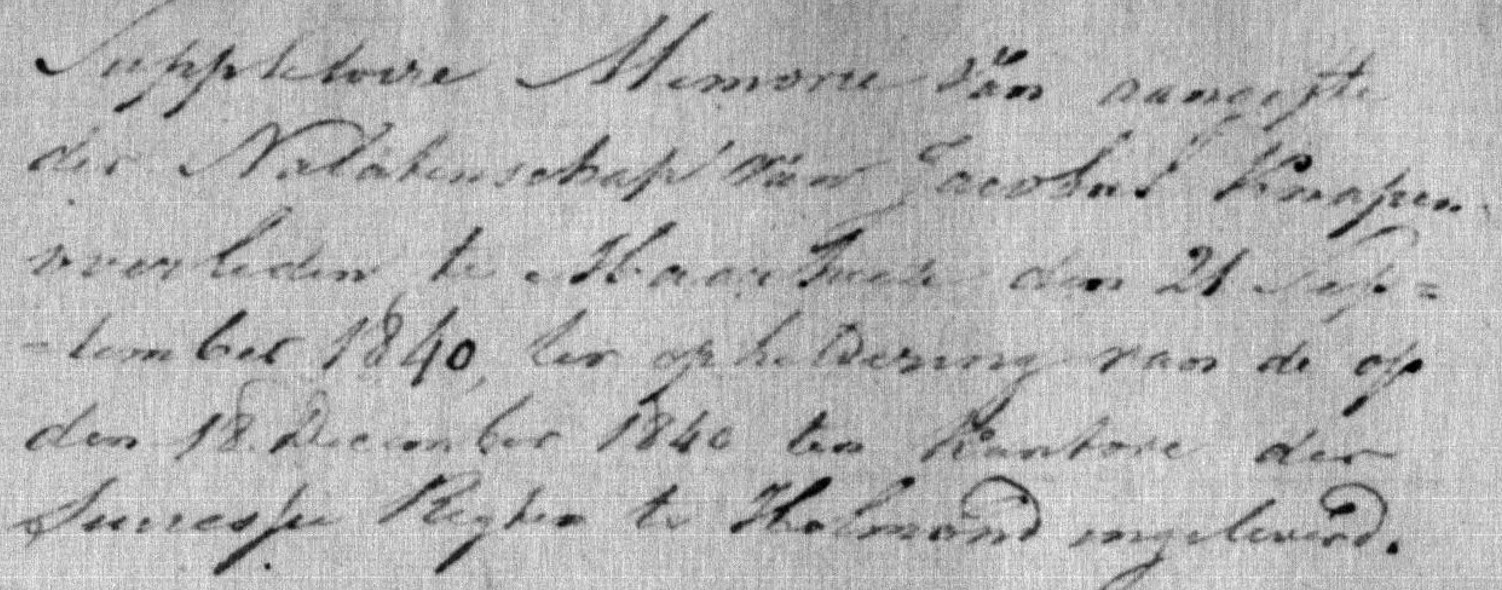 Suppletoire Memorie van aangifte
der Nalatenschap van Jacobus Knapen
overleden te Maarheeze den 21 Sep=
=tember 1840, ter opheldering van de op
den 18 December 1840 ten Kantore der
Successie Regten te Helmond ingeleverd.